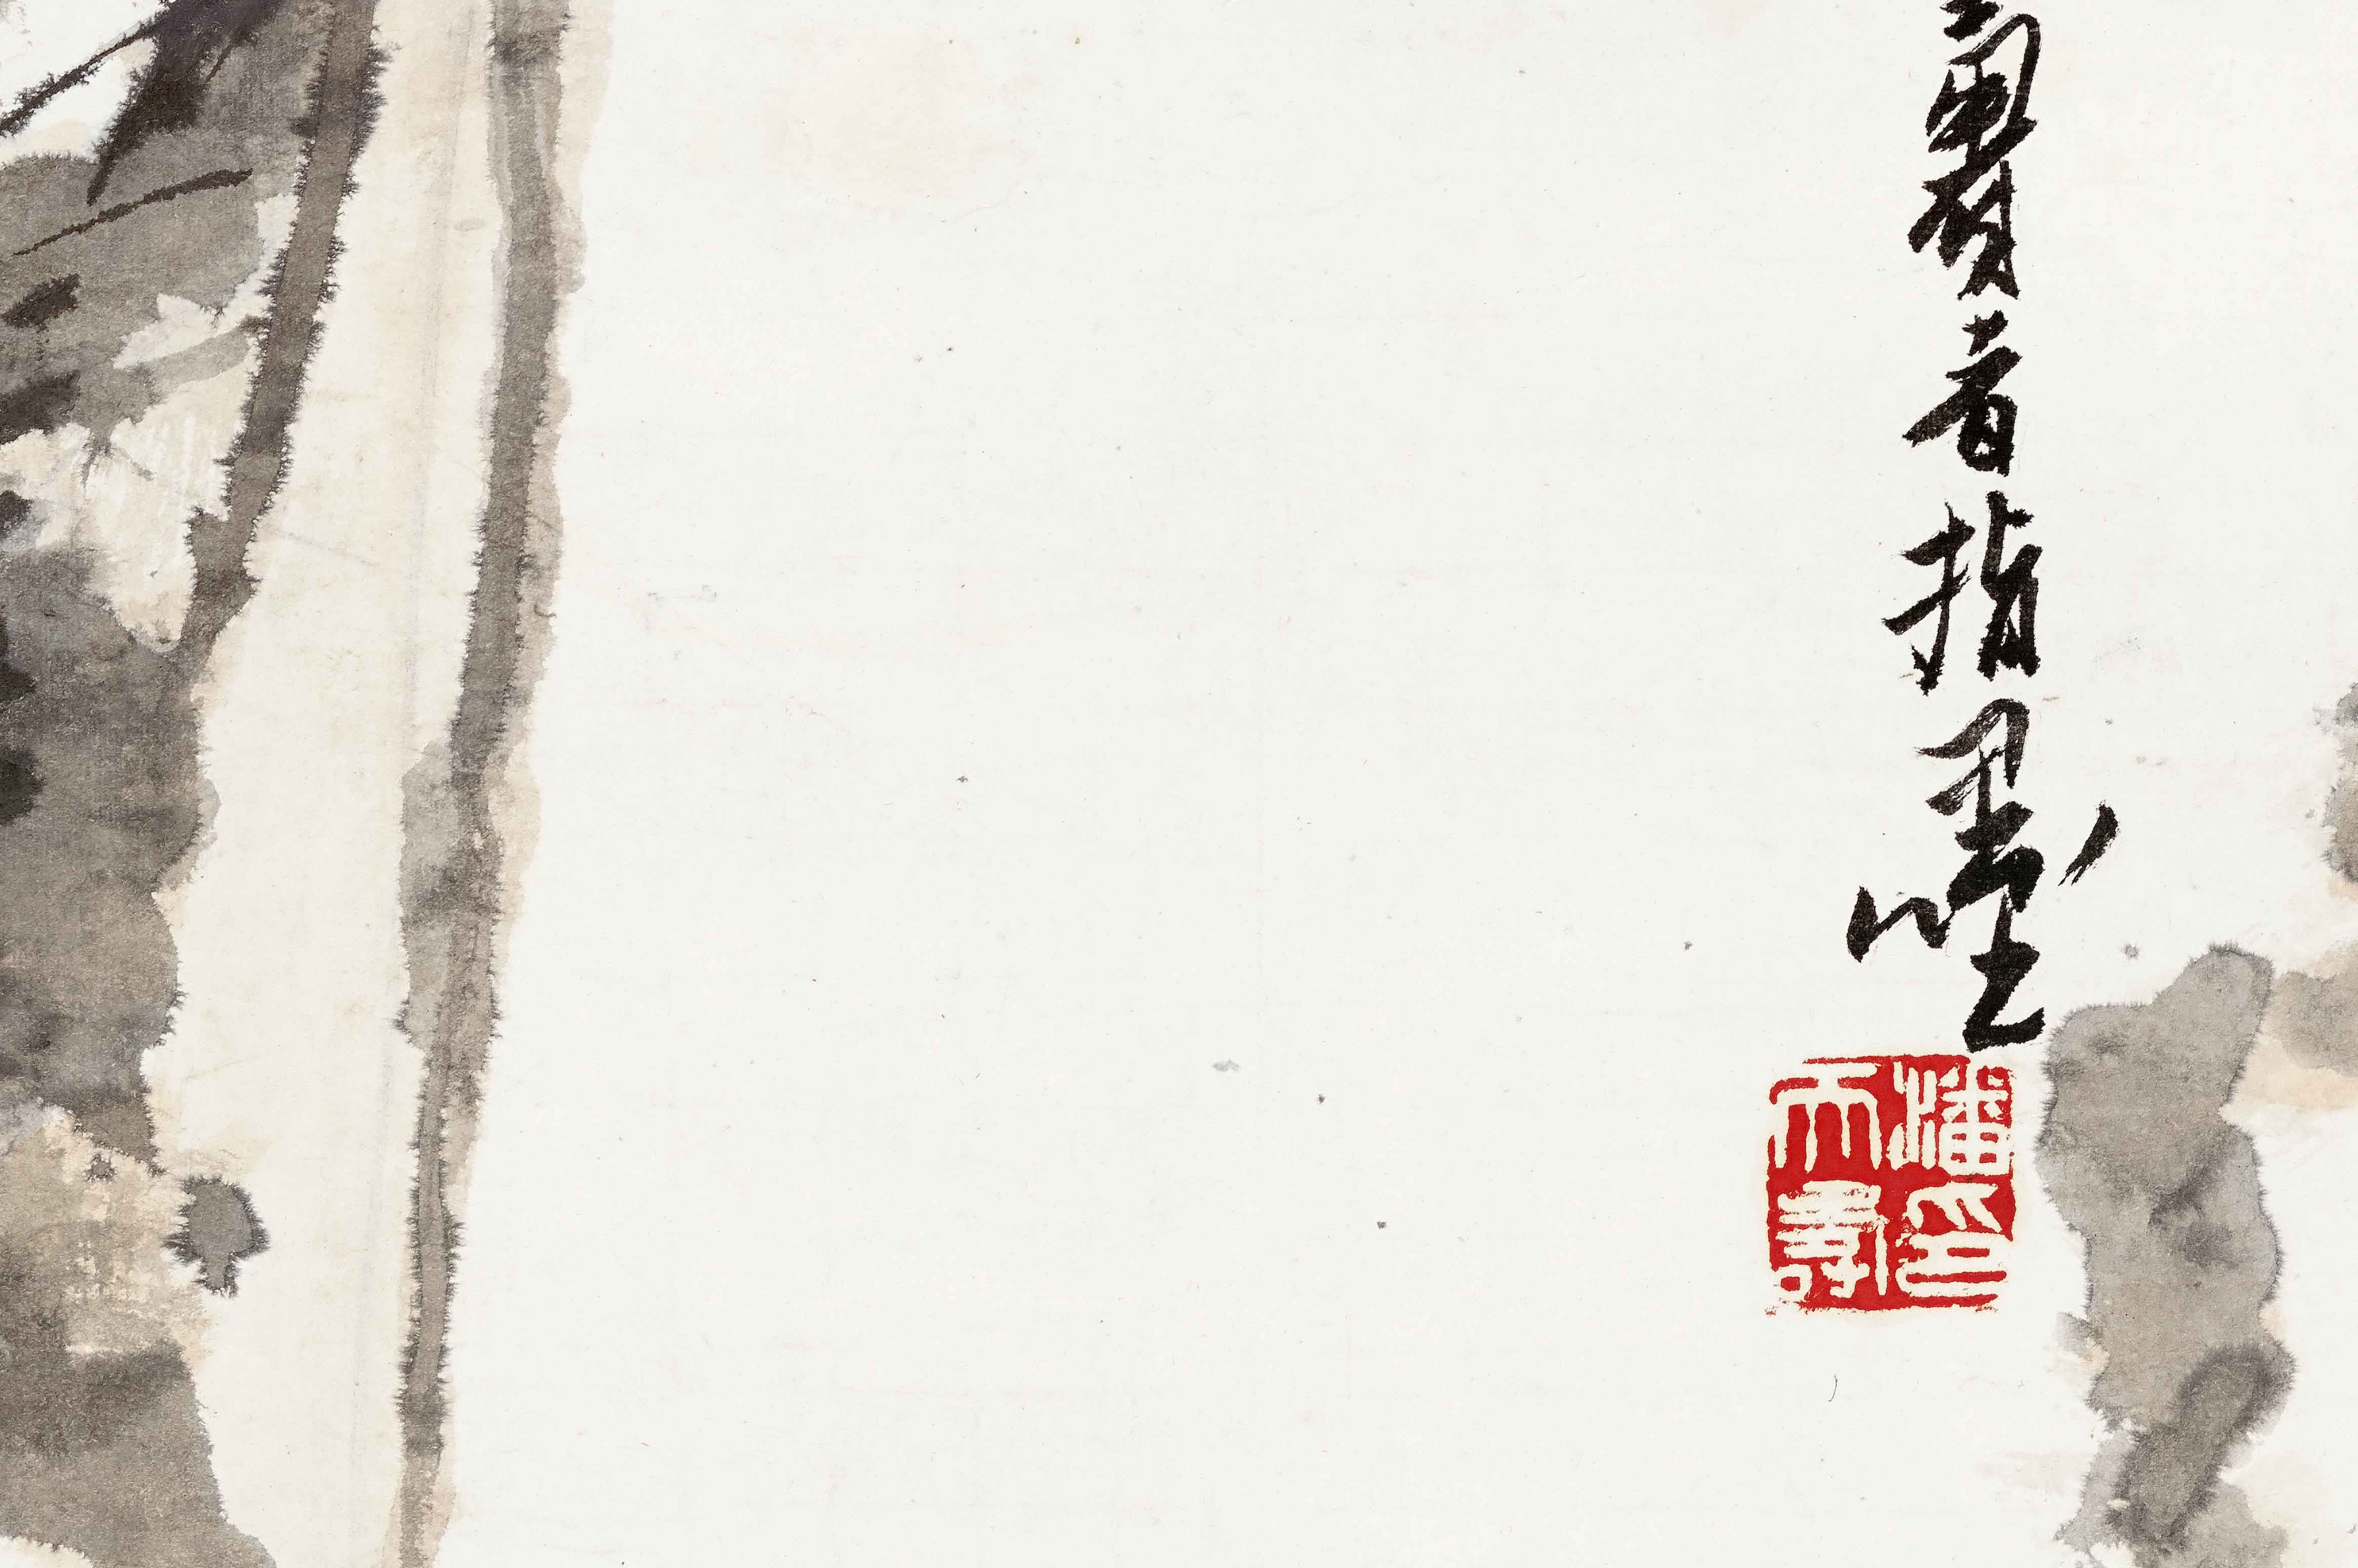 壽者指墨
潘天壽印